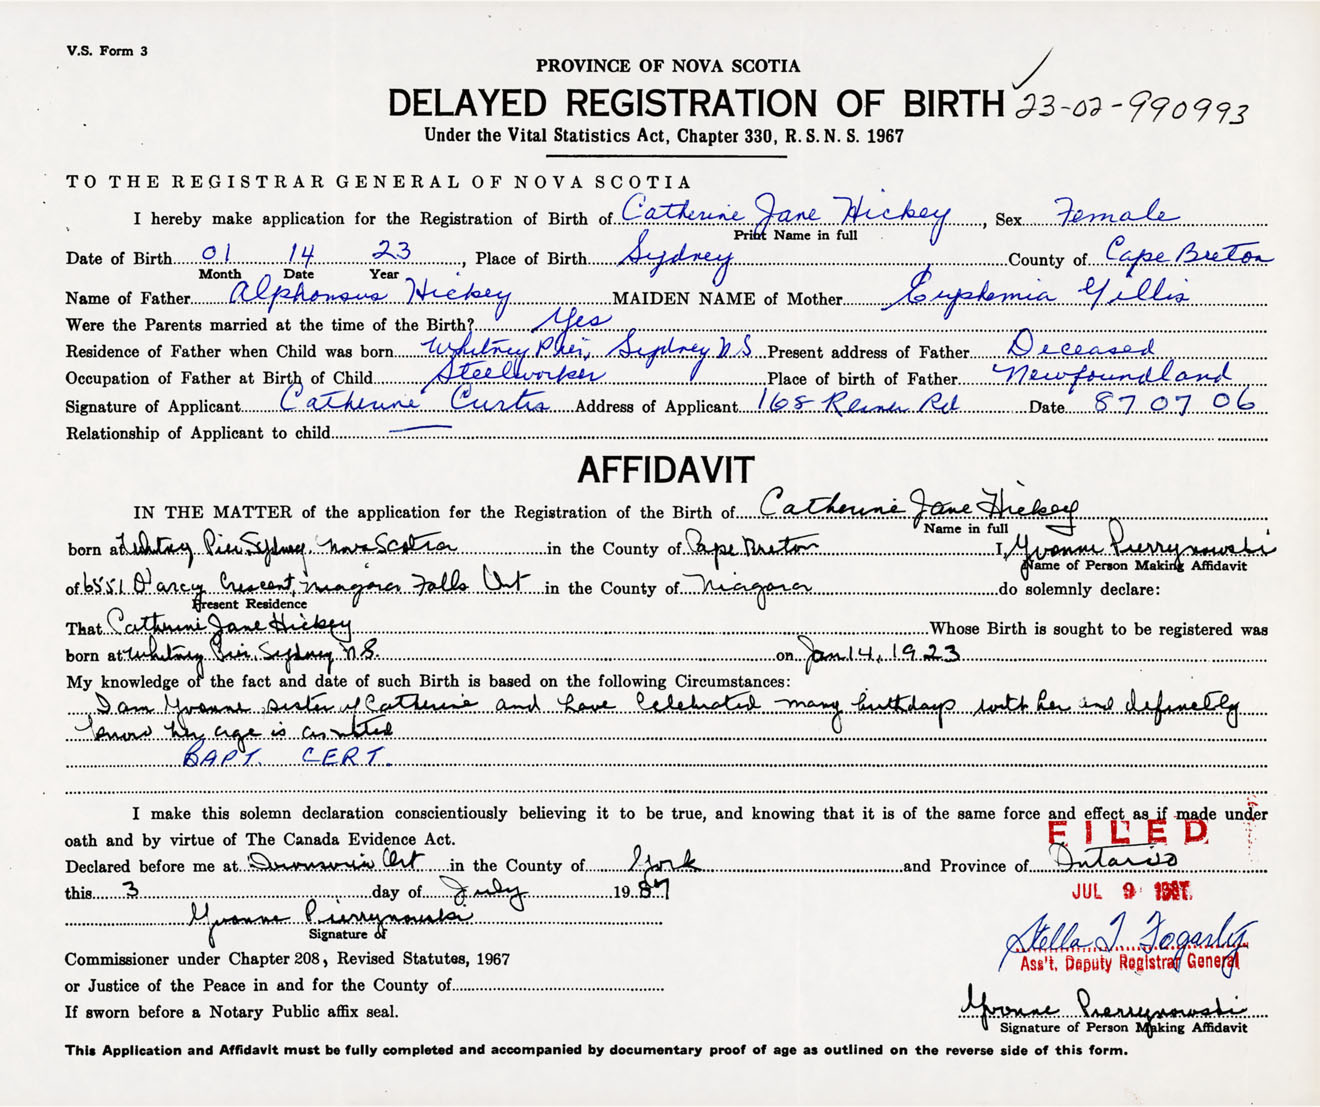 V.S. Form 3
PROVINCE OF NOVA SCOTIA
DELAYED REGISTRATION OF BIRTH 23-02-990993
Under the Vital Statistics Act, Chapter 330, R. S. N. S. 1967
TO THE REGISTRAR GENERAL OF NOVA SCOTIA
I hereby make application for the Registration of Birth of Catherine Jane Hickey, Sex Female
Print Name in full
Date of Birth 01 14 23, Place of Birth Sydney County of Cape Breton
Month Date Year
Name of Father Alphonsus Hickey MAIDEN NAME of Mother Euphemia Gillis
Were the Parents married at the time of the Birth? Yes
Residence of Father when Child was born Whitney Pier, Sydney N S Present address of Father Deceased
Occupation of Father at Birth of Child Steelworker Place of birth of Father Newfoundland
Signature of Applicant Catherine Curtis Address of Applicant 168 Rd Date 87 07 06
Relationship of Applicant to child —
AFFIDAVIT
IN THE MATTER of the application for the Registration of the Birth of Catherine Jane Hickey
Name in full
born at Whitney Pier, Sydney, Nova Scotia in the County of Cape Breton I, Yvonne Pierrynowski
Name of Person Making Affidavit
of 6551 D'arcy Crescent, Niagara Falls Ont in the County of Niagara do solemnly declare:
Present Residence
That Catherine Jane Hickey Whose Birth is sought to be registered was
born at Whitney Pier, Sydney N.S. on Jan 14, 1923
My knowledge of the fact and date of such Birth is based on the following Circumstances:
I am Yvonne sister of Catherine and have celebrated many birthdays with her and definetly
know her age is as stated
BAPT. CERT.
I make this solemn declaration conscientiously believing it to be true, and knowing that it is of the same force and effect as if made under
oath and by virtue of The Canada Evidence Act.
FILED
Declared before me at Ont in the County of York and Province of Ontario
this 3 day of July 1987
JUL 9 1987
Yvonne Pierrynowski
Signature of
Stella T Fogarty
Commissioner under Chapter 208, Revised Statutes, 1967
Ass't. Deputy Registrar General
or Justice of the Peace in and for the County of
If sworn before a Notary Public affix seal.
Yvonne Pierrynowski
Signature of Person Making Affidavit
This Application and Affidavit must be fully completed and accompanied by documentary proof of age as outlined on the reverse side of this form.